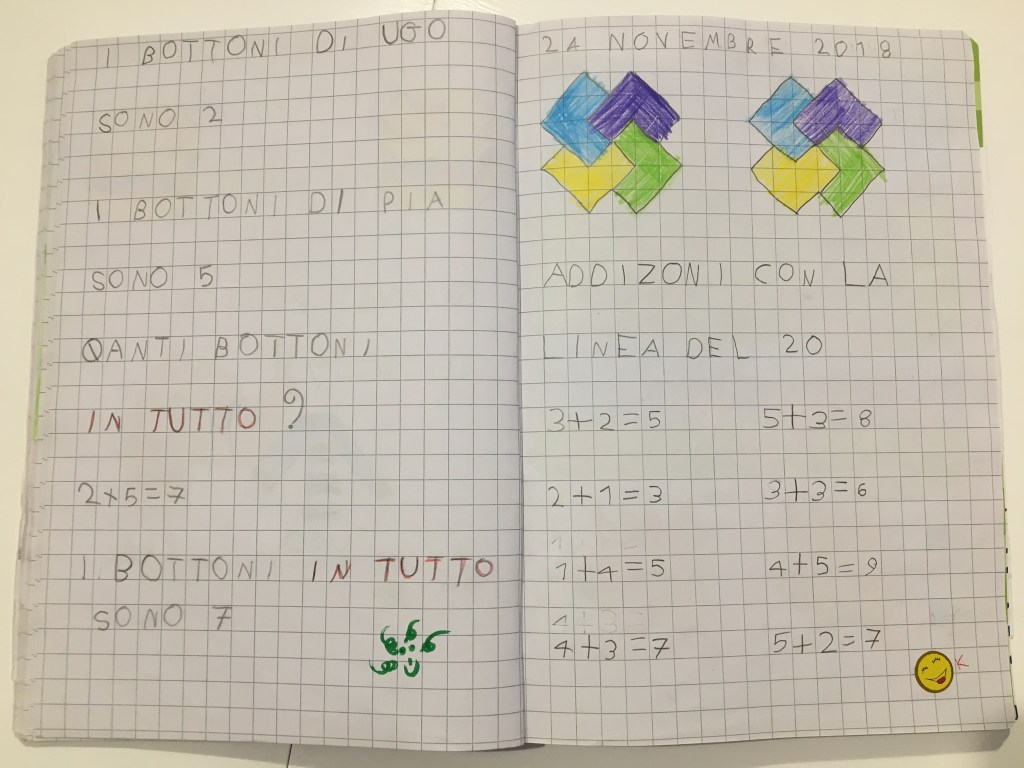 I BOTTONI DI UGO
SONO 2
I BOTTONI DI PIA
SONO 5
QANTI BOTTONI
IN TUTTO ?
2+5=7
I BOTTONI IN TUTTO
SONO 7
24 NOVEMBRE 2018
ADDIZONI CON LA
LINEA DEL 20
3+2=5 5+3=8
2+1=3 3+3=6
1+4=5 4+5=9
4+3=7 5+2=7
K